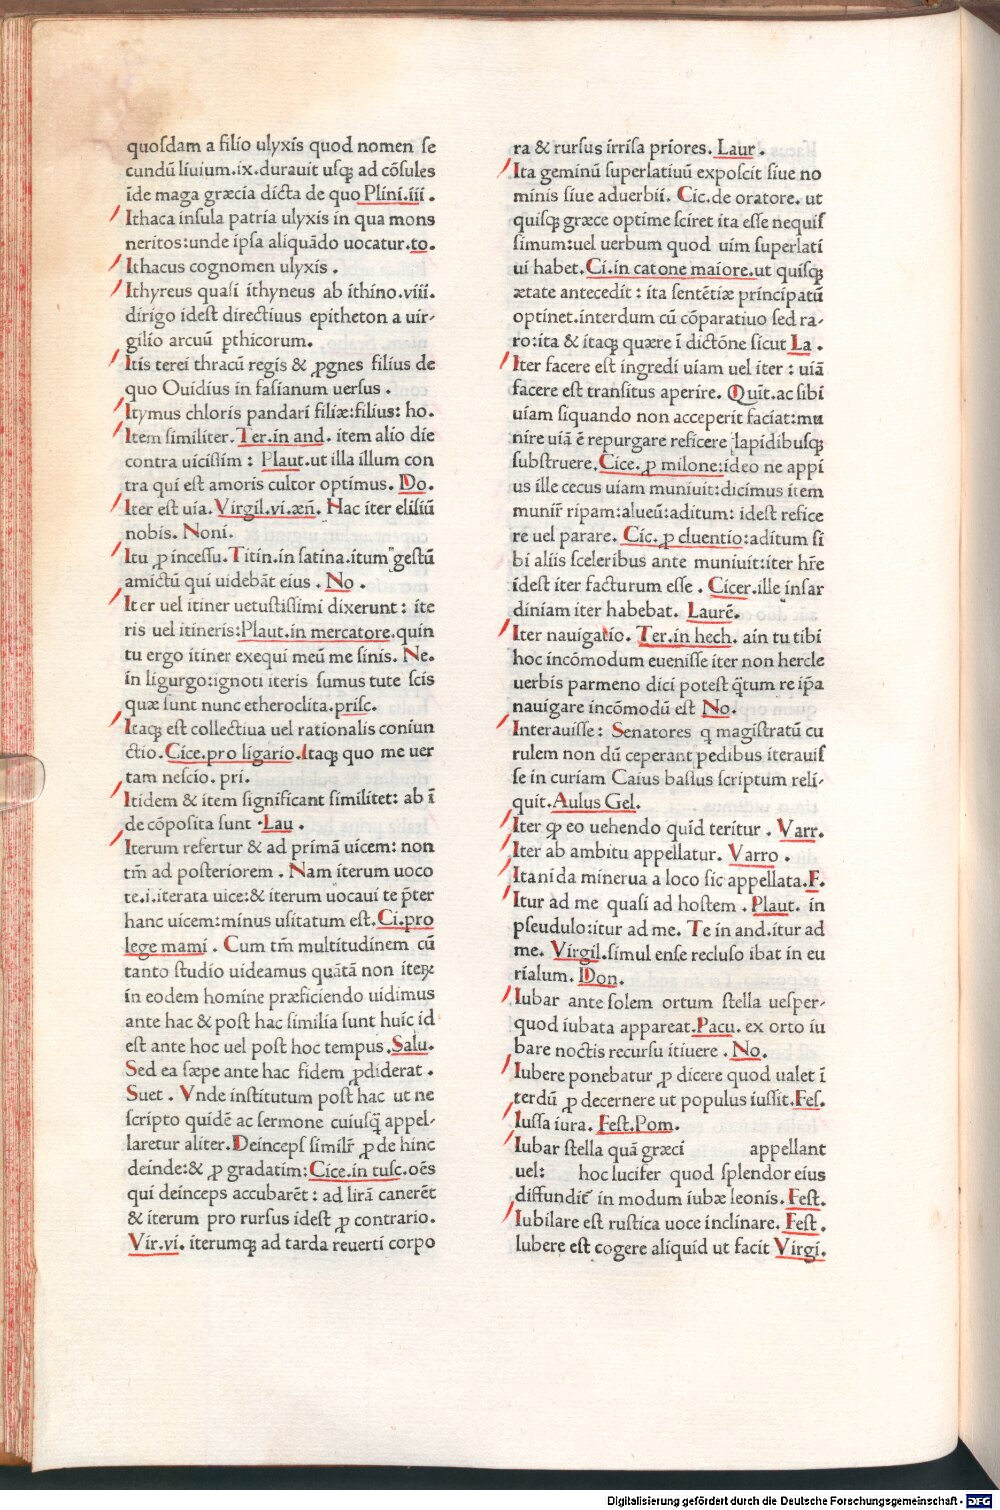 quosdam a filio ulyxis quod nomen se
cundũ liuium.ix.durauit usqꝫ ad cõsules
ĩde maga græcia dicta de quo Plini.iii.
Ithaca insula patria ulyxis in qua mons
neritos:unde ipsa aliquãdo uocatur.to.
Ithacus cognomen ulyxis.
Ithyreus quasi ithyneus ab ithino.viii.
dirigo idest directiuus epitheton a uir-
gilio arcuũ ꝑthicorum.
Itis terei thracũ regis & ꝓgnes filius de
quo Ouidius in fasianum uersus.
Itymus chloris pandari filiæ:filius: ho.
Item similiter. Ter.in and. item alio die
contra uicissim: Plaut.ut illa illum con
tra qui est amoris cultor optimus. Do.
Iter est uia. Virgil.vi.æñ. Hac iter elisiũ
nobis. Noni.
Itu ꝓ incessu. Titin.in satina.itum gestũ
amictũ qui uidebãt eius. No.
Iter uel itiner uetustissimi dixerunt: ite
ris uel itineris:Plaut.in mercatore.quin
tu ergo itiner exequi meũ me sinis. Ne.
in ligurgo:ignoti iteris sumus tute scis
quæ sunt nunc etheroclita.prisc.
Itaqꝫ est collectiua uel rationalis coniun
ctio.Cice.pro ligario.Itaqꝫ quo me uer
tam nescio. pri.
Itidem & item significant similitet: ab ĩ
de cõposita sunt .Lau.
Iterum refertur & ad primã uicem: non
tm̃ ad posteriorem. Nam iterum uoco
te.i.iterata uice:& iterum uocaui te p̃ter
hanc uicem:minus usitatum est.Ci.pro
lege mami. Cum tm̃ multitudinem cũ
tanto studio uideamus quãtã non iteꝝ
in eodem homine præficiendo uidimus
ante hac & post hac similia sunt huic id
est ante hoc uel post hoc tempus.Salu.
Sed ea sæpe ante hac fidem ꝓdiderat.
Suet. Vnde institutum post hac ut ne
scripto quidẽ ac sermone cuiusq̃ appel-
laretur aliter.Deinceps simil̃r ꝓ de hinc
deinde:& ꝓ gradatim:Cice.in tusc.oẽs
qui deinceps accubarẽt: ad lirã canerẽt
& iterum pro rursus idest ꝓ contrario.
Vir.vi. iterumqꝫ ad tarda reuerti corpo
ra & rursus irrisa priores. Laur.
Ita geminũ superlatiuũ exposcit siue no
minis siue aduerbii. Cic.de oratore. ut
quisqꝫ græce optime sciret ita esse nequis
simum:uel uerbum quod uim superlati
ui habet.Ci.in catone maiore.ut quisqꝫ
ætate antecedit: ita sentẽtiæ principatũ
optinet.interdum cũ cõparatiuo sed ra-
ro:ita & itaqꝫ quære ĩ dictõne sicut La.
Iter facere est ingredi uiam uel iter: uiã
facere est transitus aperire. Quĩt.ac sibi
uiam siquando non acceperit faciat:mu
nire uiã ẽ repurgare reficere lapidibusqꝫ
substruere.Cice.ꝓ milone:ideo ne appi
us ille cecus uiam muniuit:dicimus item
munir̃ ripam:alueũ:aditum: idest refice
re uel parare. Cic.ꝓ cluentio:aditum si
bi aliis sceleribus ante muniuit:iter hr̃e
idest iter facturum esse. Cicer.ille insar
diniam iter habebat. Laurẽ.
Iter nauigatio. Ter.in hech. ain tu tibi
hoc incõmodum euenisse iter non hercle
uerbis parmeno dici potest q̃tum re ip̃a
nauigare incõmodũ est No.
Interauisse: Senatores q magistratũ cu
rulem non dũ ceperant pedibus iterauis
se in curiam Caius baslus scriptum reli-
quit.Aulus Gel.
Iter qꝫ eo uehendo quid teritur. Varr.
Iter ab ambitu appellatur. Varro.
Itanida minerua a loco sic appellata.F.
Itur ad me quasi ad hostem. Plaut. in
pseudulo:itur ad me. Te in and.itur ad
me. Virgil.simul ense recluso ibat in eu
rialum. Don.
Iubar ante solem ortum stella uesper-
quod iubata appareat.Pacu. ex orto iu
bare noctis recursu itiuere. No.
Iubere ponebatur ꝓ dicere quod ualet ĩ
terdũ ꝓ decernere ut populus iussit.Fes.
Iussa iura. Fest.Pom.
Iubar stella quã græci appellant
uel: hoc lucifer quod splendor eius
diffundit̃ in modum iubæ leonis. Fest.
Iubilare est rustica uoce inclinare. Fest.
Iubere est cogere aliquid ut facit Virgi.
Digitalisierung gefördert durch die Deutsche Forschungsgemeinschaft - DFG